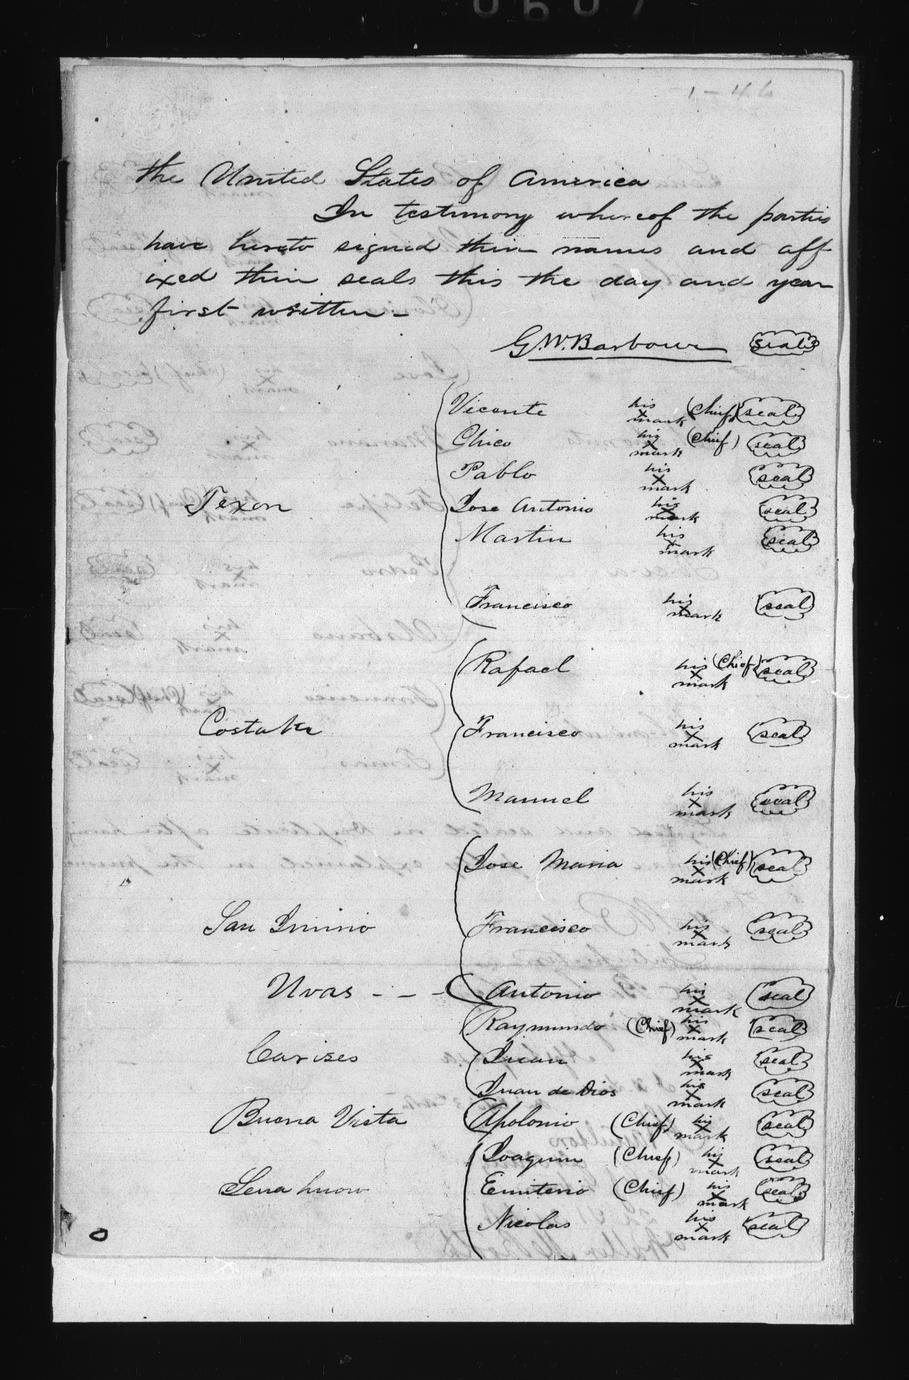 0607
1-46
the United States of America
In testimony whereof the parties
have hereto signed their names and aff
ixed their seals this the day and year
first written -
G.W. Barbour seal
Vicente his x mark (Chief) seal
Chico his x mark (Chief) seal
Pablo his x mark seal
Texon Jose Antonio his x mark seal
Martin his x mark seal
Francisco his x mark seal
Rafael his x mark (Chief) seal
Costa Francisco his x mark seal
Manuel his x mark seal
Jose Maria his x mark (Chief) seal
San Imirio Francisco his x mark seal
Uvas - - - Antonio his x mark seal
Raymundo (Chief) his x mark seal
Carises Juan his x mark seal
Juan de Dios his x mark seal
Buena Vista Apolonio (Chief) his x mark seal
Joaquin (Chief) his x mark seal
Sena huow Emiterio (Chief) his x mark seal
Nicolas his x mark seal